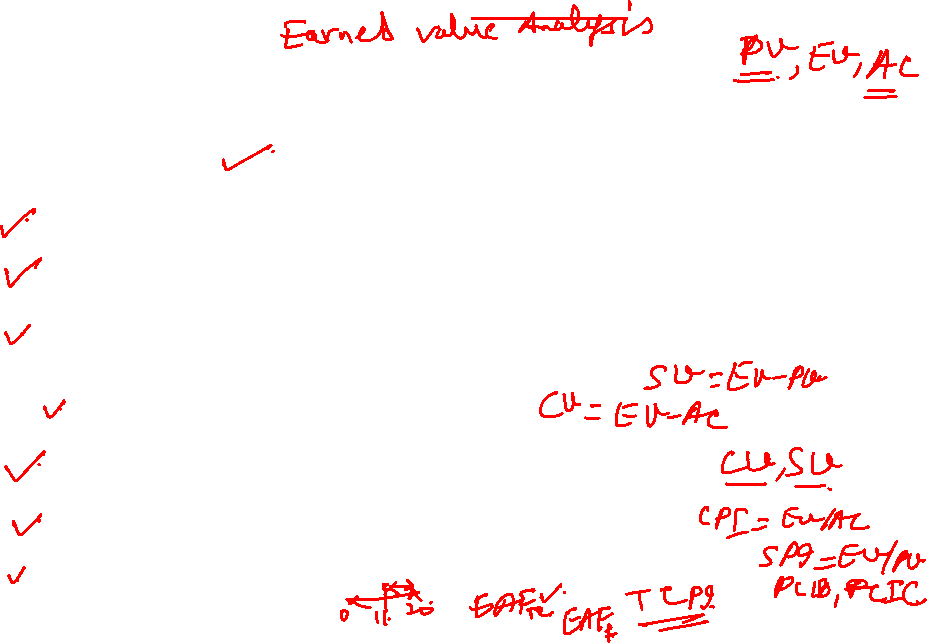 Earned value Analysis
PV, EV, AC
SV = EV-PV
CV = EV-AC
CV, SV
CPI = EV/AC
SPI = EV/PV
PCIB, PCIC
0 11 20 TCPI